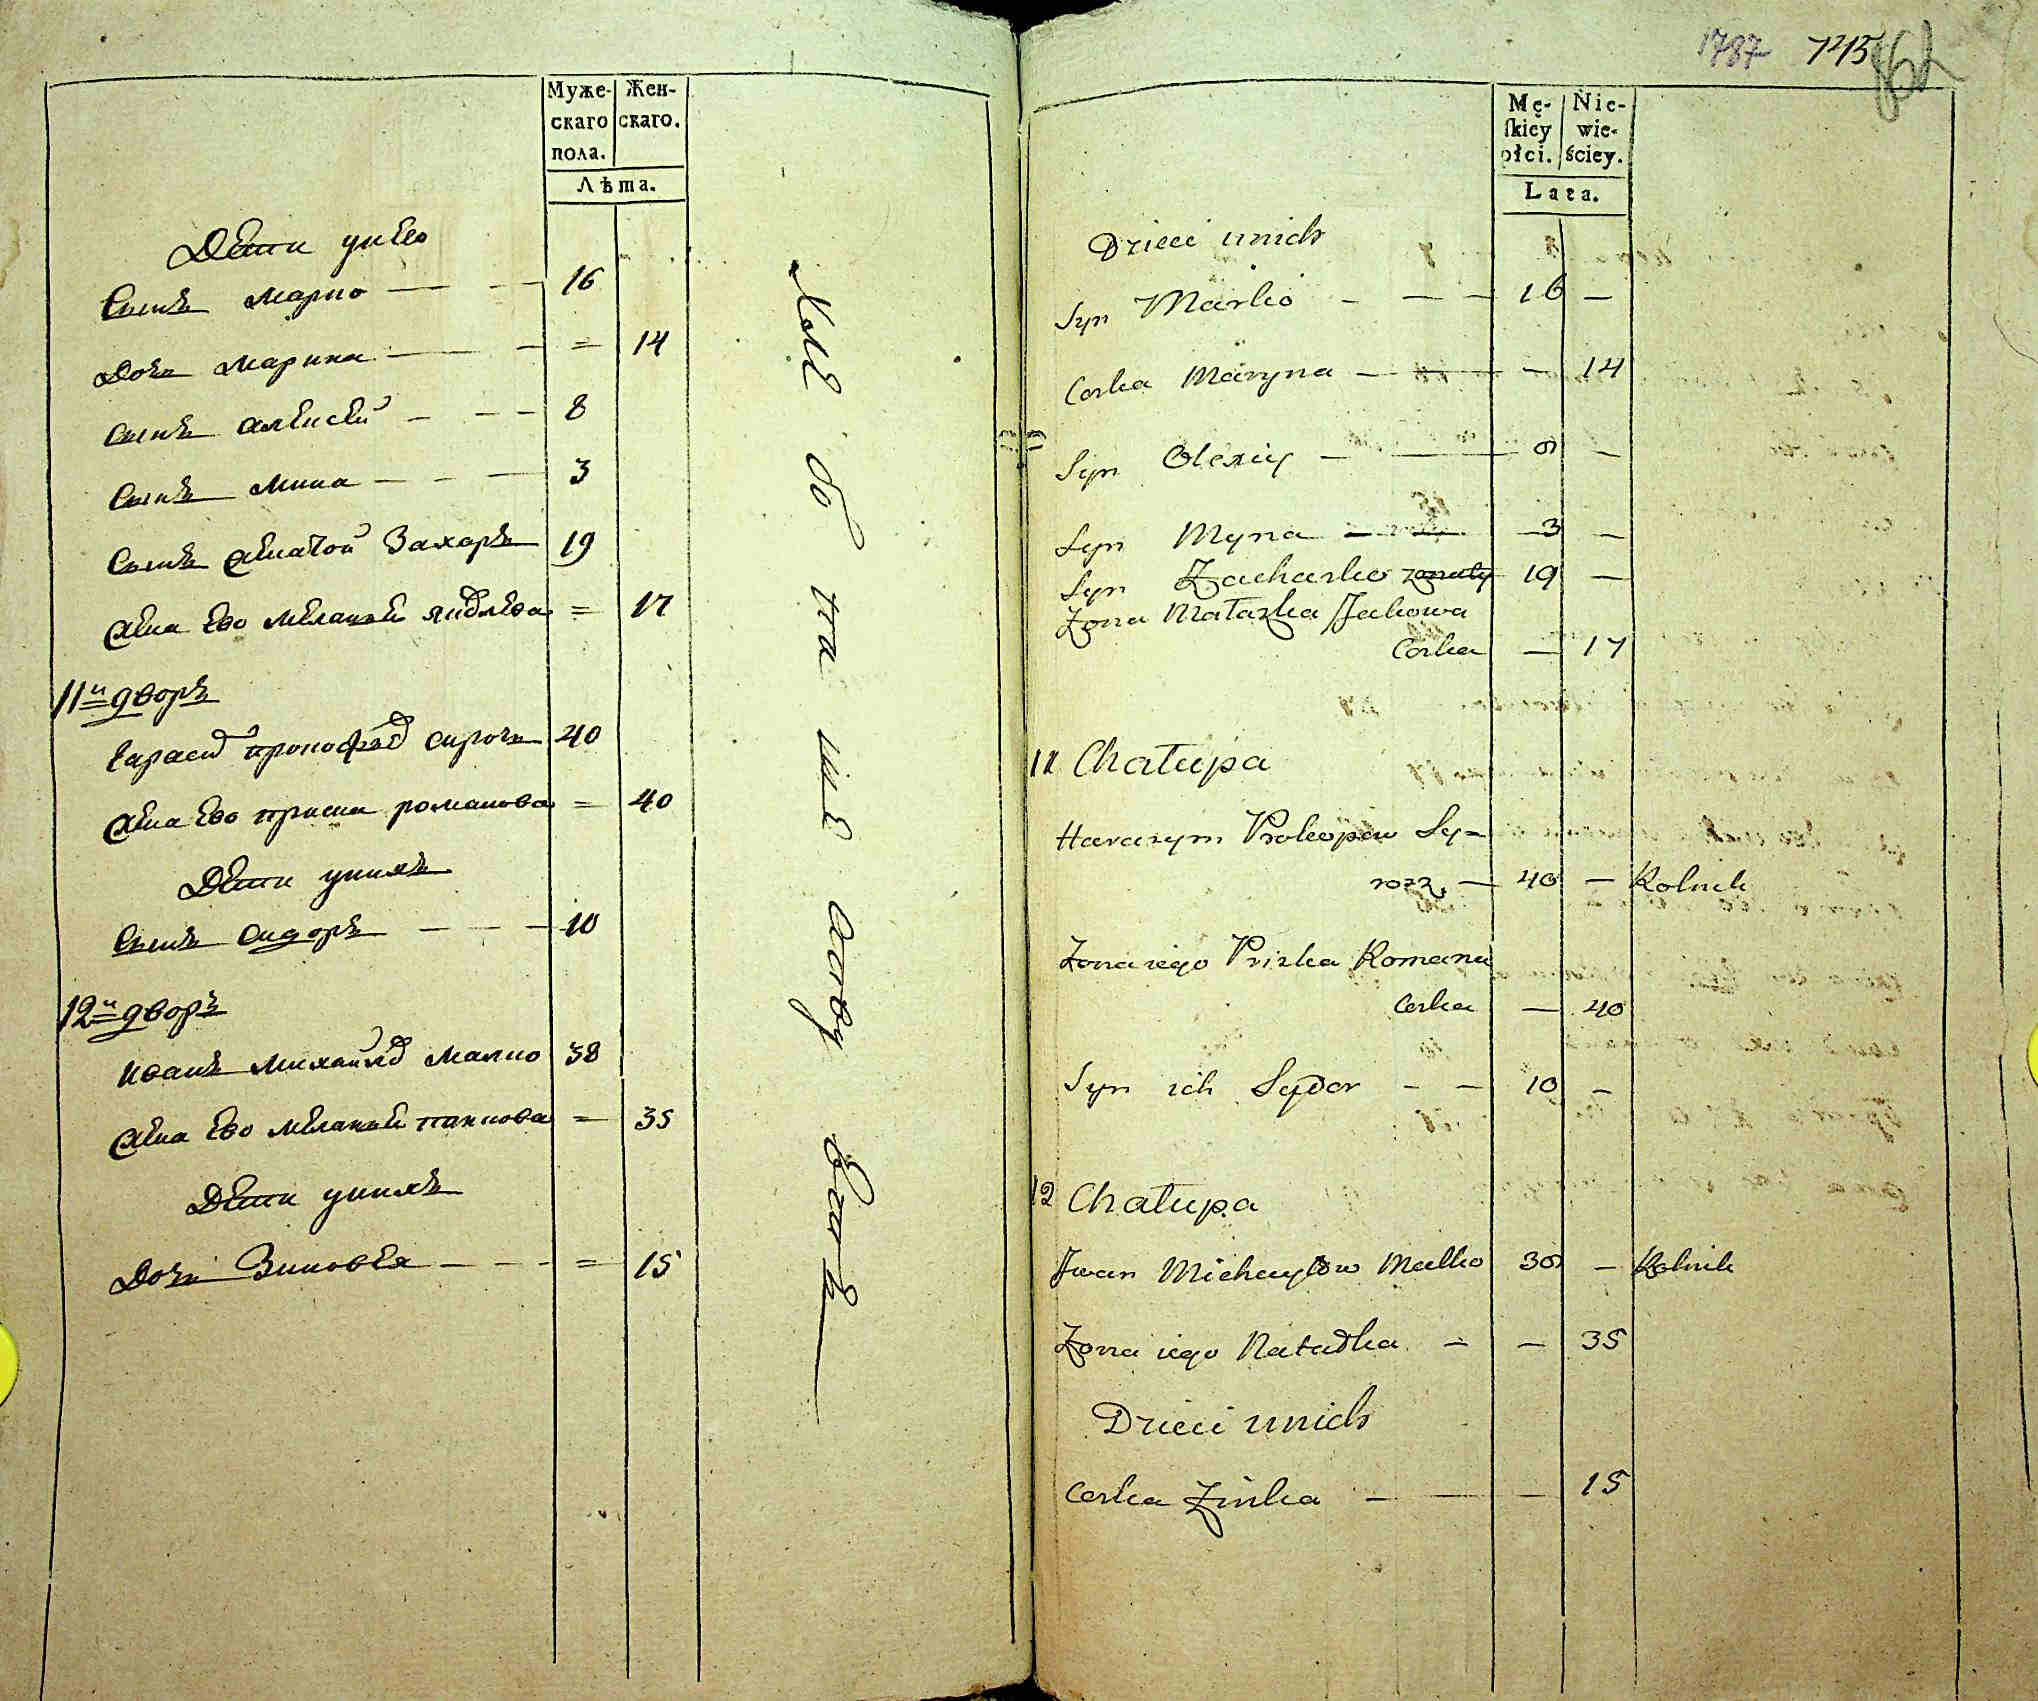 Муже-
скаго
пола.
Жен-
скаго.
Лѣта.
Дети унего
Сынъ Марко — — — 16
Дочь Марина — — — = 14
Сынъ Алексей — — — 8
Сынъ Мина — — — 3
Сынъ женатой Захаръ 19
Жена Ево Меланья = 17
11й дворъ
Гарасим Прокофьев 40
Жена Ево Приска романова = 40
Дети унихъ
Сынъ Сидоръ — — — 10
12й дворъ
Иванъ Михайлов Малко 38
Жена Ево Меланья = 35
Дети унихъ
Дочь Зиновея — — — = 15
1787 745
Mę-
skiey
płci.
Nie-
wie-
ściey.
Lata.
Dzieci unich
Syn Marko — — — 16 —
Corka Maryna — — — 14
Syn Olexiy — — 8 —
Syn Myna — — — 3 —
Syn Zacharko żonaty 19 —
Żona Małaszka Jakowa
Corka — 17
11 Chałupa
Harasym Prokopow Sy=
rocz. — 40 — Rolnik
Żona iego Priska Romana
Corka — 40
Syn ich Sydor — — 10 —
12 Chałupa
Jwan Michayłow Malko 38 — Rolnik
Żona iego — — 35
Dzieci unich
Corka Zinka — — — 15